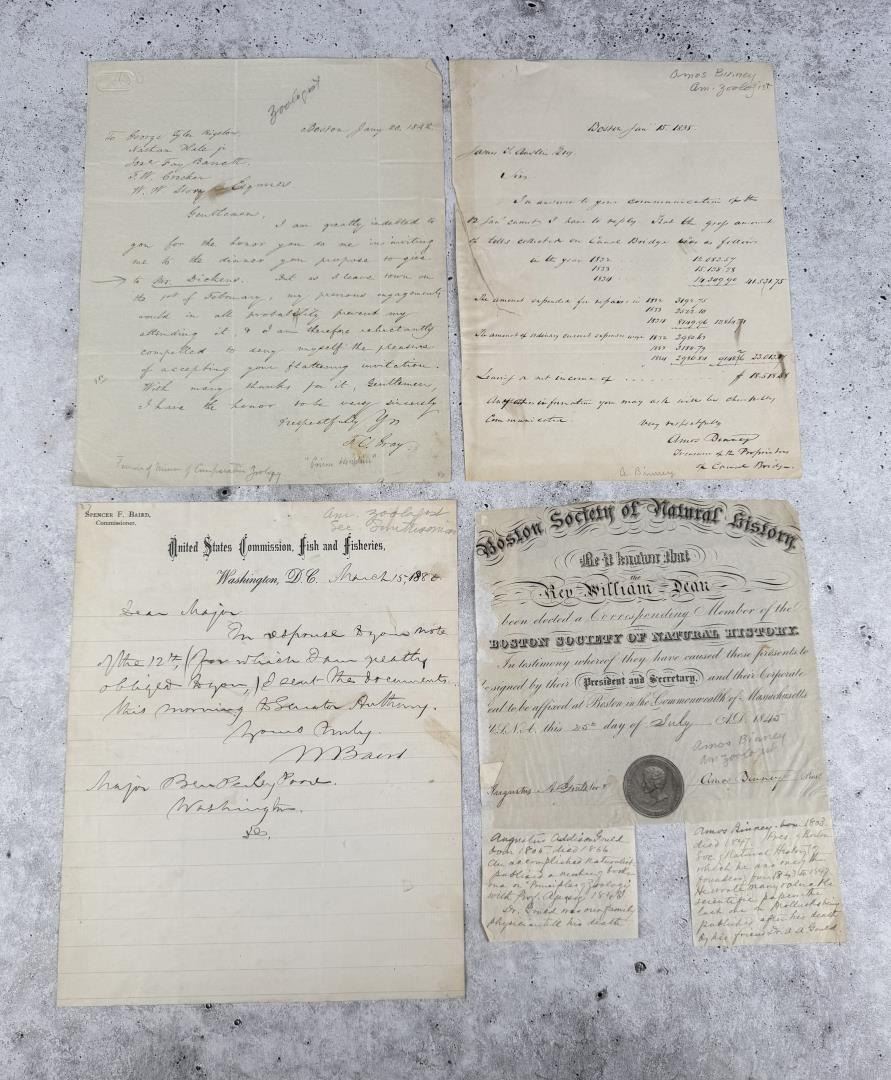 Zoologist
Boston Jany 20. 1842
To George Tyler Bigelow
Nathan Hale jr
Fay Barrett
J. W. Crocker
W. W. Story Esquires
Gentlemen,
I am greatly indebted to
you for the honor you do me in inviting
me to the dinner you propose to give
to Mr. Dickens. But as I leave town on
the 1st of February, my previous engagements
would in all probability prevent my
attending it, & I am therefore reluctantly
compelled to deny myself the pleasure
of accepting your flattering invitation.
With many thanks for it, Gentlemen,
I have the honor to be very sincerely
respectfully Yrs
F. C. Gray
Founder of Museum of Comparative Zoology
Amos Binney
Am. Zoologist
Boston Jan 15. 1835
James T. Austin Esq
Sir
In answer to your communication of the
13 Jan I have to reply that the gross amount
of tolls collected on Canal Bridge was as follows
in the year 1832
1833
1834 41.531.75
The amount expended for repairs in 1832
1833
1834
The amount of ordinary current expenses were 1832
1833
1834
Leaving a net income of
information you may ask will be cheerfully
communicated
Very respectfully
Amos Binney
Treasurer of the Proprietors
of Canal Bridge
A. Binney
SPENCER F. BAIRD,
Commissioner.
Am. Zoologist
Sec. Smithsonian
United States Commission, Fish and Fisheries,
Washington, D.C. March 15, 1880
Dear Major
In response to your note
of the 12th, (for which I am greatly
obliged to you,) I sent the documents
this morning to Senator Anthony.
Yours truly,
Baird
Major Ben Perley Poore
Washington
Boston Society of Natural History.
Be it known that
the
Rev William Dean
been elected a Corresponding Member of the
BOSTON SOCIETY OF NATURAL HISTORY.
In testimony whereof they have caused these presents to
signed by their President and Secretary, and their Corporate
eal to be affixed at Boston in the Commonwealth of Massachusetts
U.S.N.A. this 25th day of July A.D. 1845
Amos Binney
Am Zoologist
Augustus A. Gould
Amos Binney
Augustus Addison Gould
born 1805 died 1866
An accomplished Naturalist
published
one on "Principles of Zoology"
with Prof. Agassiz 1848
Dr. Gould was our family
physician till his death
Amos Binney born 1803
died 1847. Pres. of Boston
Soc. Natural History of
which he was one of the
founders from 1843 to 1847
He wrote many valuable
scientific papers, the
last one on mollusks being
published after his death
by his friend Dr. A A Gould